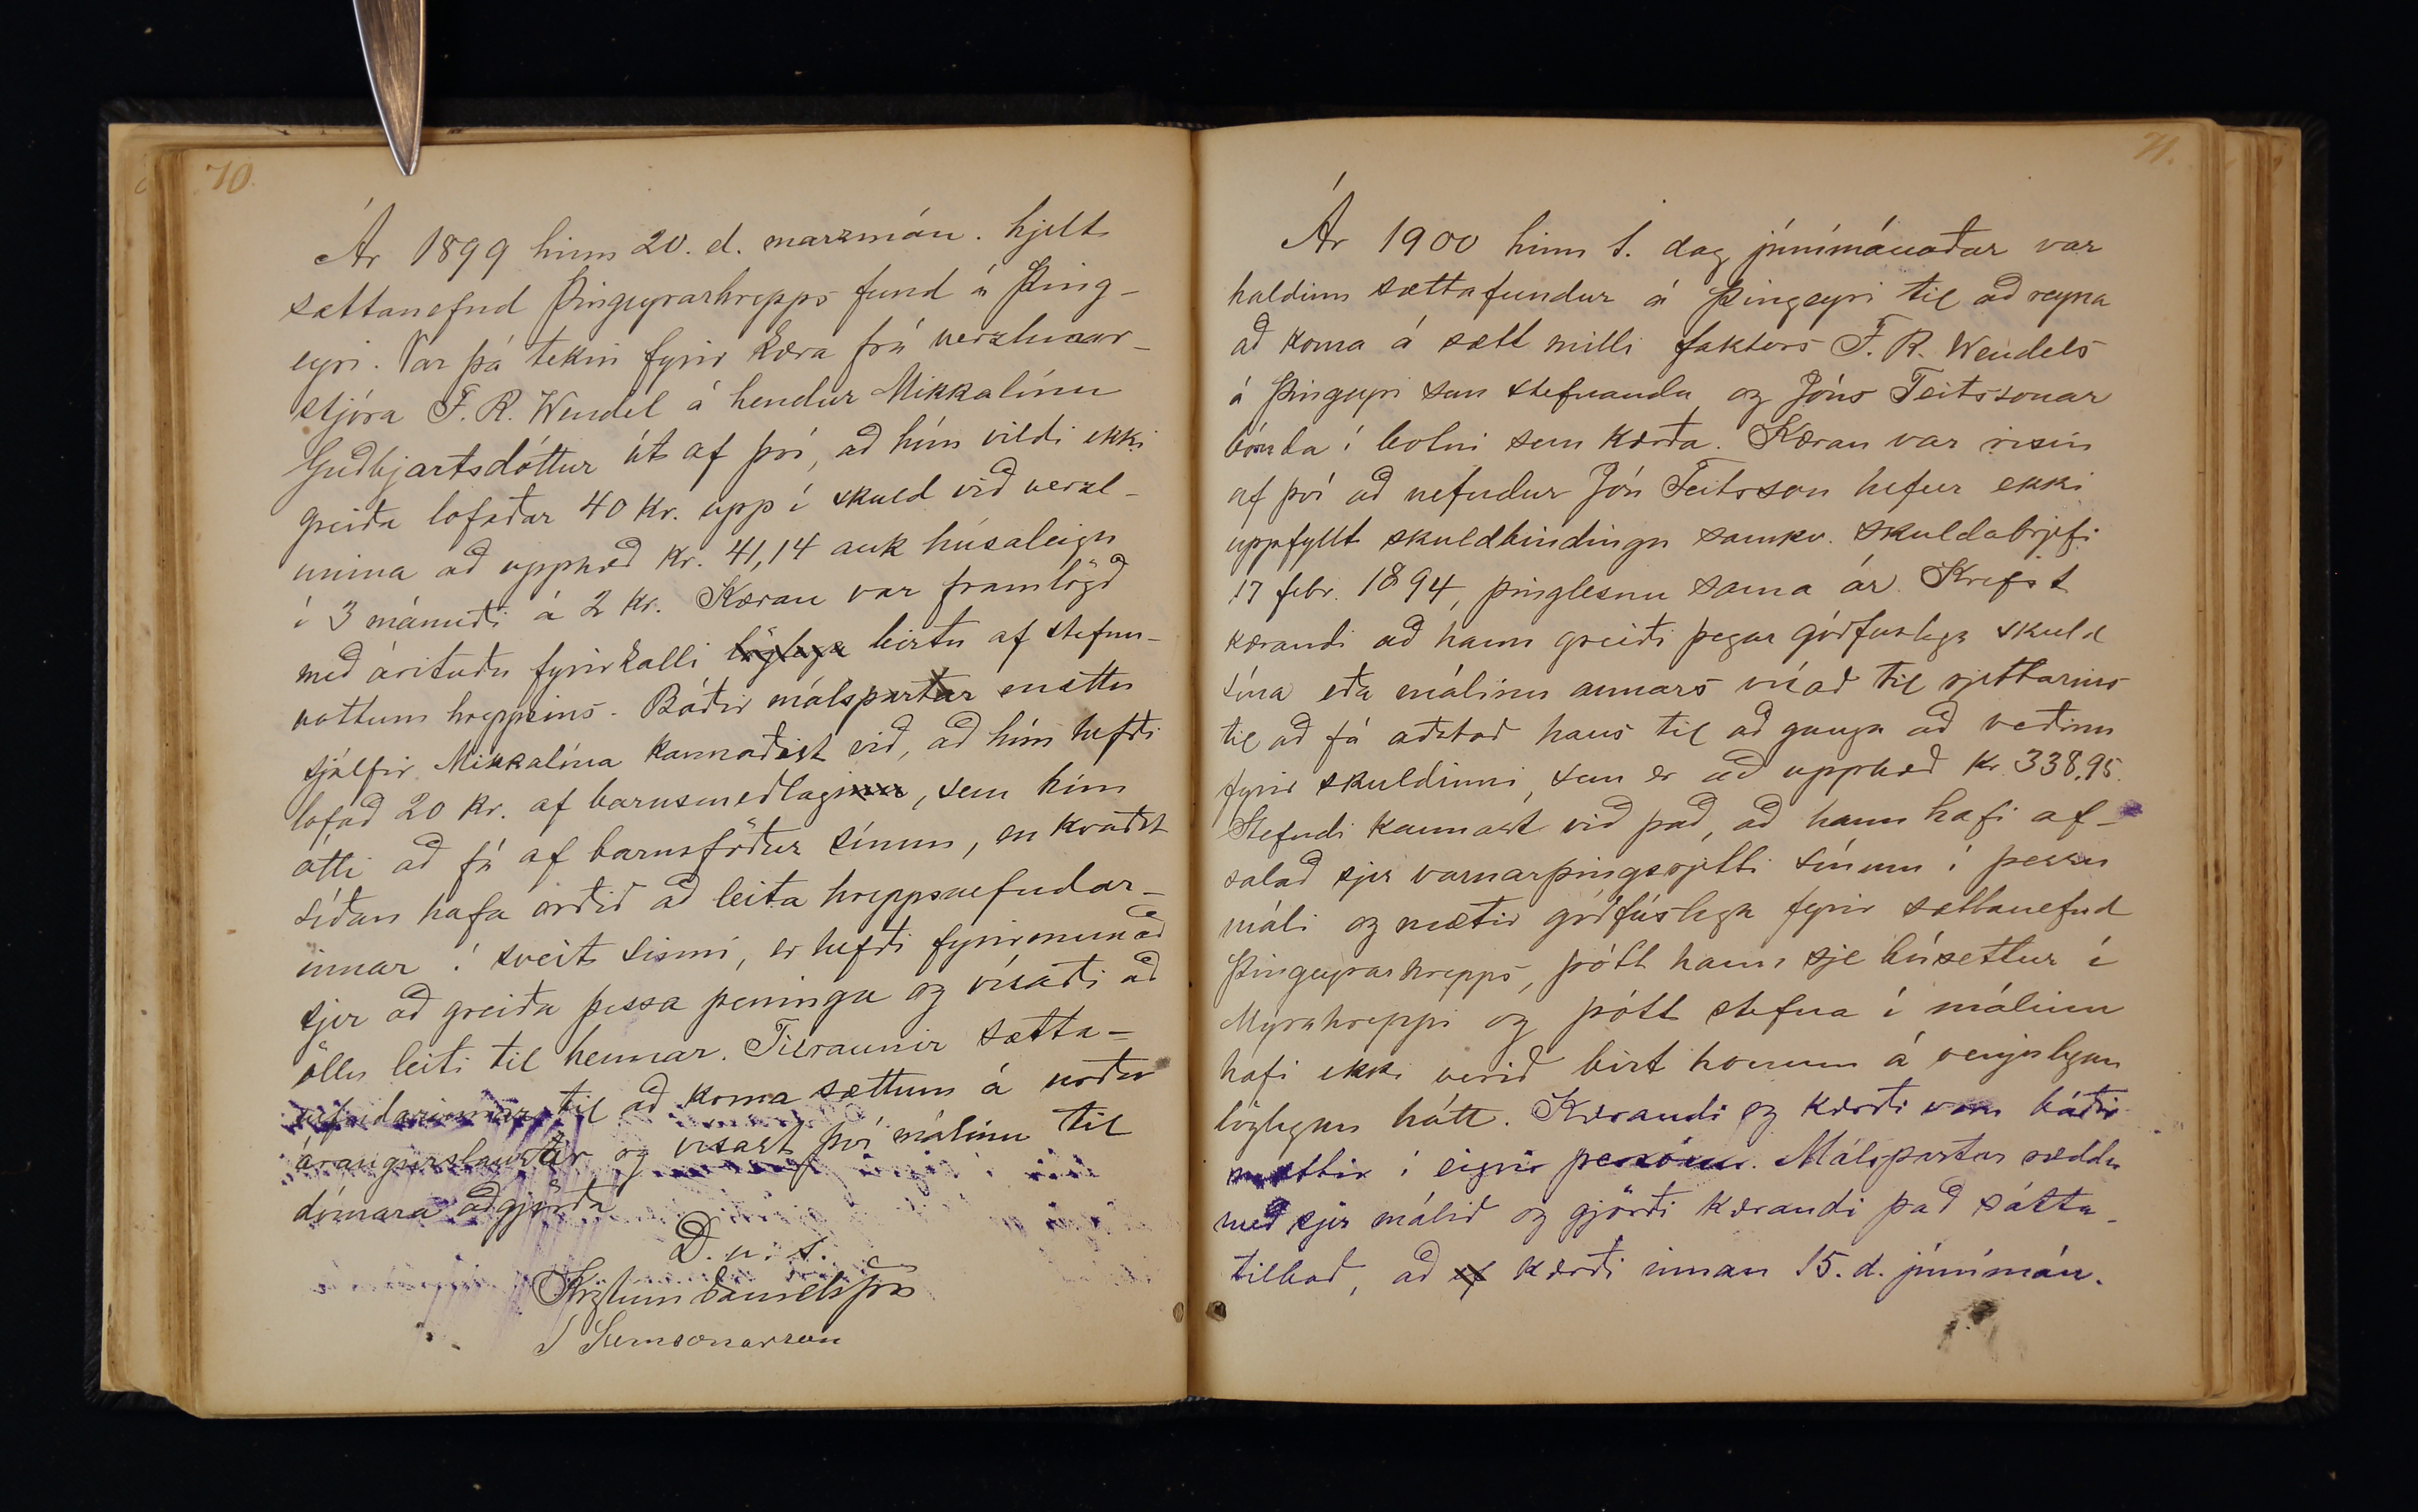 70.
Ár 1899 hinn 20. d. marzmán. hjelt
sættanefnd Þingeyrarhrepps fund á Þing-
eyri. Var þá tekin fyrir kæra frá verzlunar-
stjóra F. R. Wendel á hendur Mikkalínu
Guðbjartsdóttur út af því, að hún vildi ekki
greiða lofaðar 40 kr. upp í skuld við verzl-
unina að upphæð kr. 41,14 auk húsaleigu
í 3 mánuði á 2 kr. Kæran var framlögð
með árituðu fyrirkalli löglega birtu af stefnu-
vottum hreppsins. Báðir málspartar mættu
sjálfir. Mikkalína kannaðist við, að hún hefði
lofað 20 kr. af barnsmeðlaginu, sem hún
átti að fá af barnsföður sínum, en kvaðst
síðan hafa orðið að leita hreppsnefndar-
innar í sveit sinni, er hefði fyrirmunað
sjer að greiða þessa peninga og vísaði að
öllu leiti til hennar. Tilraunir sætta-
nefndarinnar til að koma sættum á urðu
árangurslausar og vísast því málinu til
dómara aðgjörða
D. u. s.
Kristinn Daníelsson
J Samsonarson
71.
Ár 1900 hinn 1. dag júnímánaðar var
haldinn sættafundur á Þingeyri til að reyna
að koma á sætt milli faktors F. R. Wendels
á Þingeyri sem stefnanda og Jóns Teitssonar
bónda í botni sem kærða. Kæran var risin
af því að nefndur Jón Teitsson hefur ekki
uppfyllt skuldbindingu samkv. skuldabrjefi
17 febr. 1894, þinglesnu sama ár. Krefst
kærandi að hann greiði þegar góðfuslega skuld
sína eða málinu annars vísað til rjettarins
til að fá aðstoð hans til að ganga að veðinu
fyrir skuldinni, sem er að upphæð kr 338,95.
Stefndi kannast við það, að hann hafi af-
salað sjer varnarþingsrjetti sínum í þessu
máli og mætir góðfúslega fyrir sættanefnd
Þingeyrarhrepps, þótt hann sje búsettur í
Mýrahreppi og þótt stefna í málinu
hafi ekki verið birt honum á venjulegan
löglegan hátt. Kærandi og kærði voru báðir
mættir í eigin persónu. Málspartar ræddu
með sjer málið og gjörði kærandi það sátta-
tilboð, að ef kærði innan 15. d. júnímán.